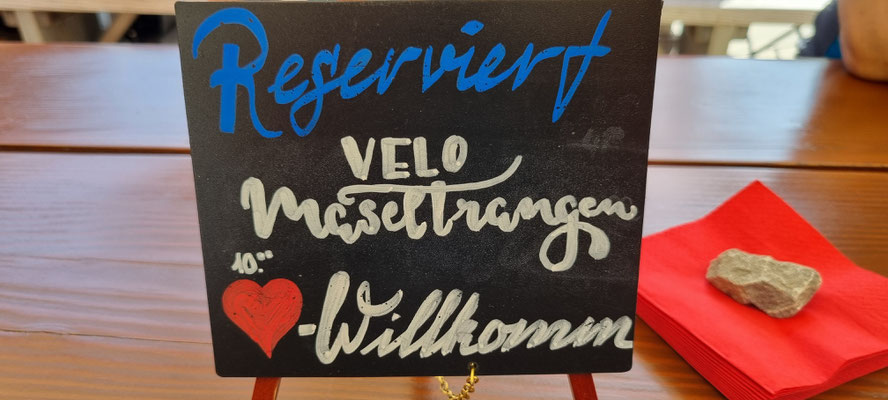 Reserviert
VELO
Maseltrangen
10.⁰⁰
-Willkomm